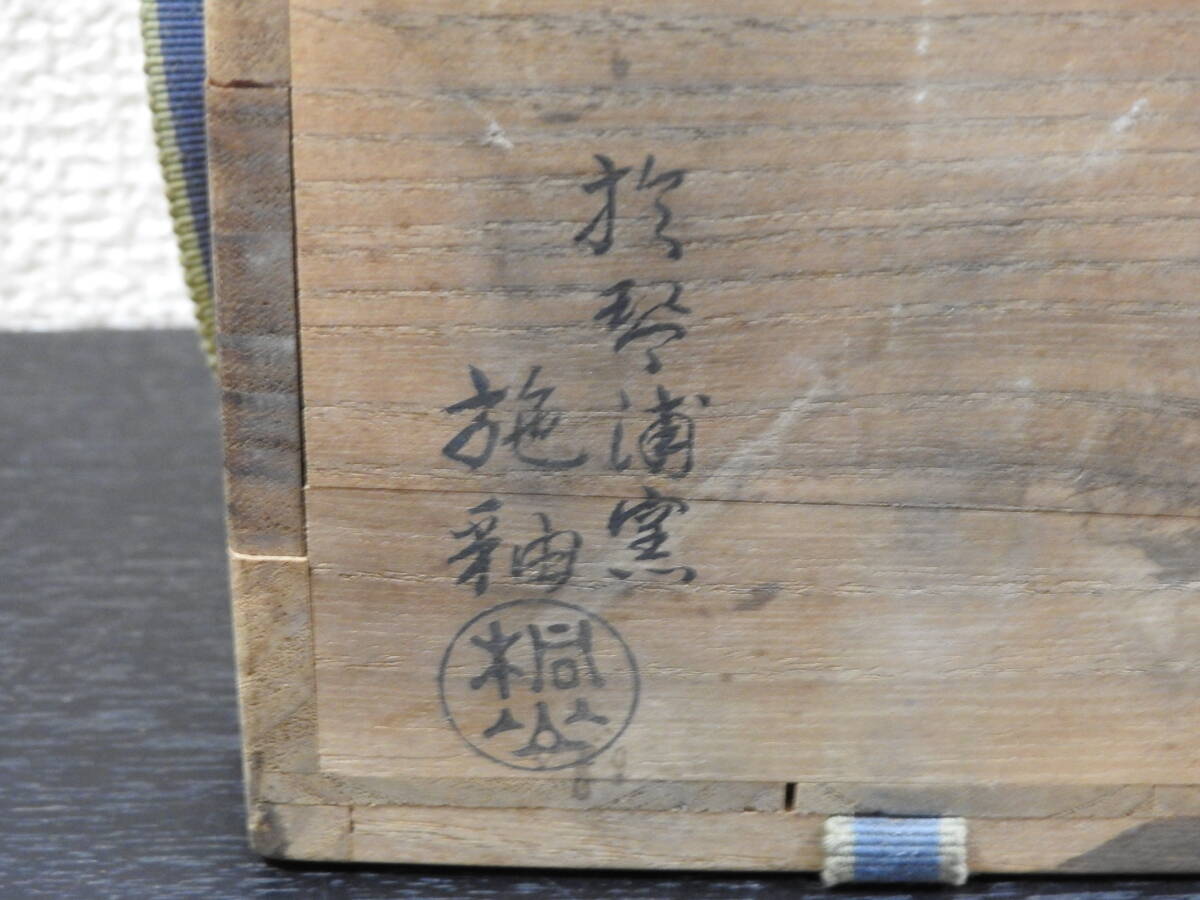 於琴浦窯
施釉
桐山